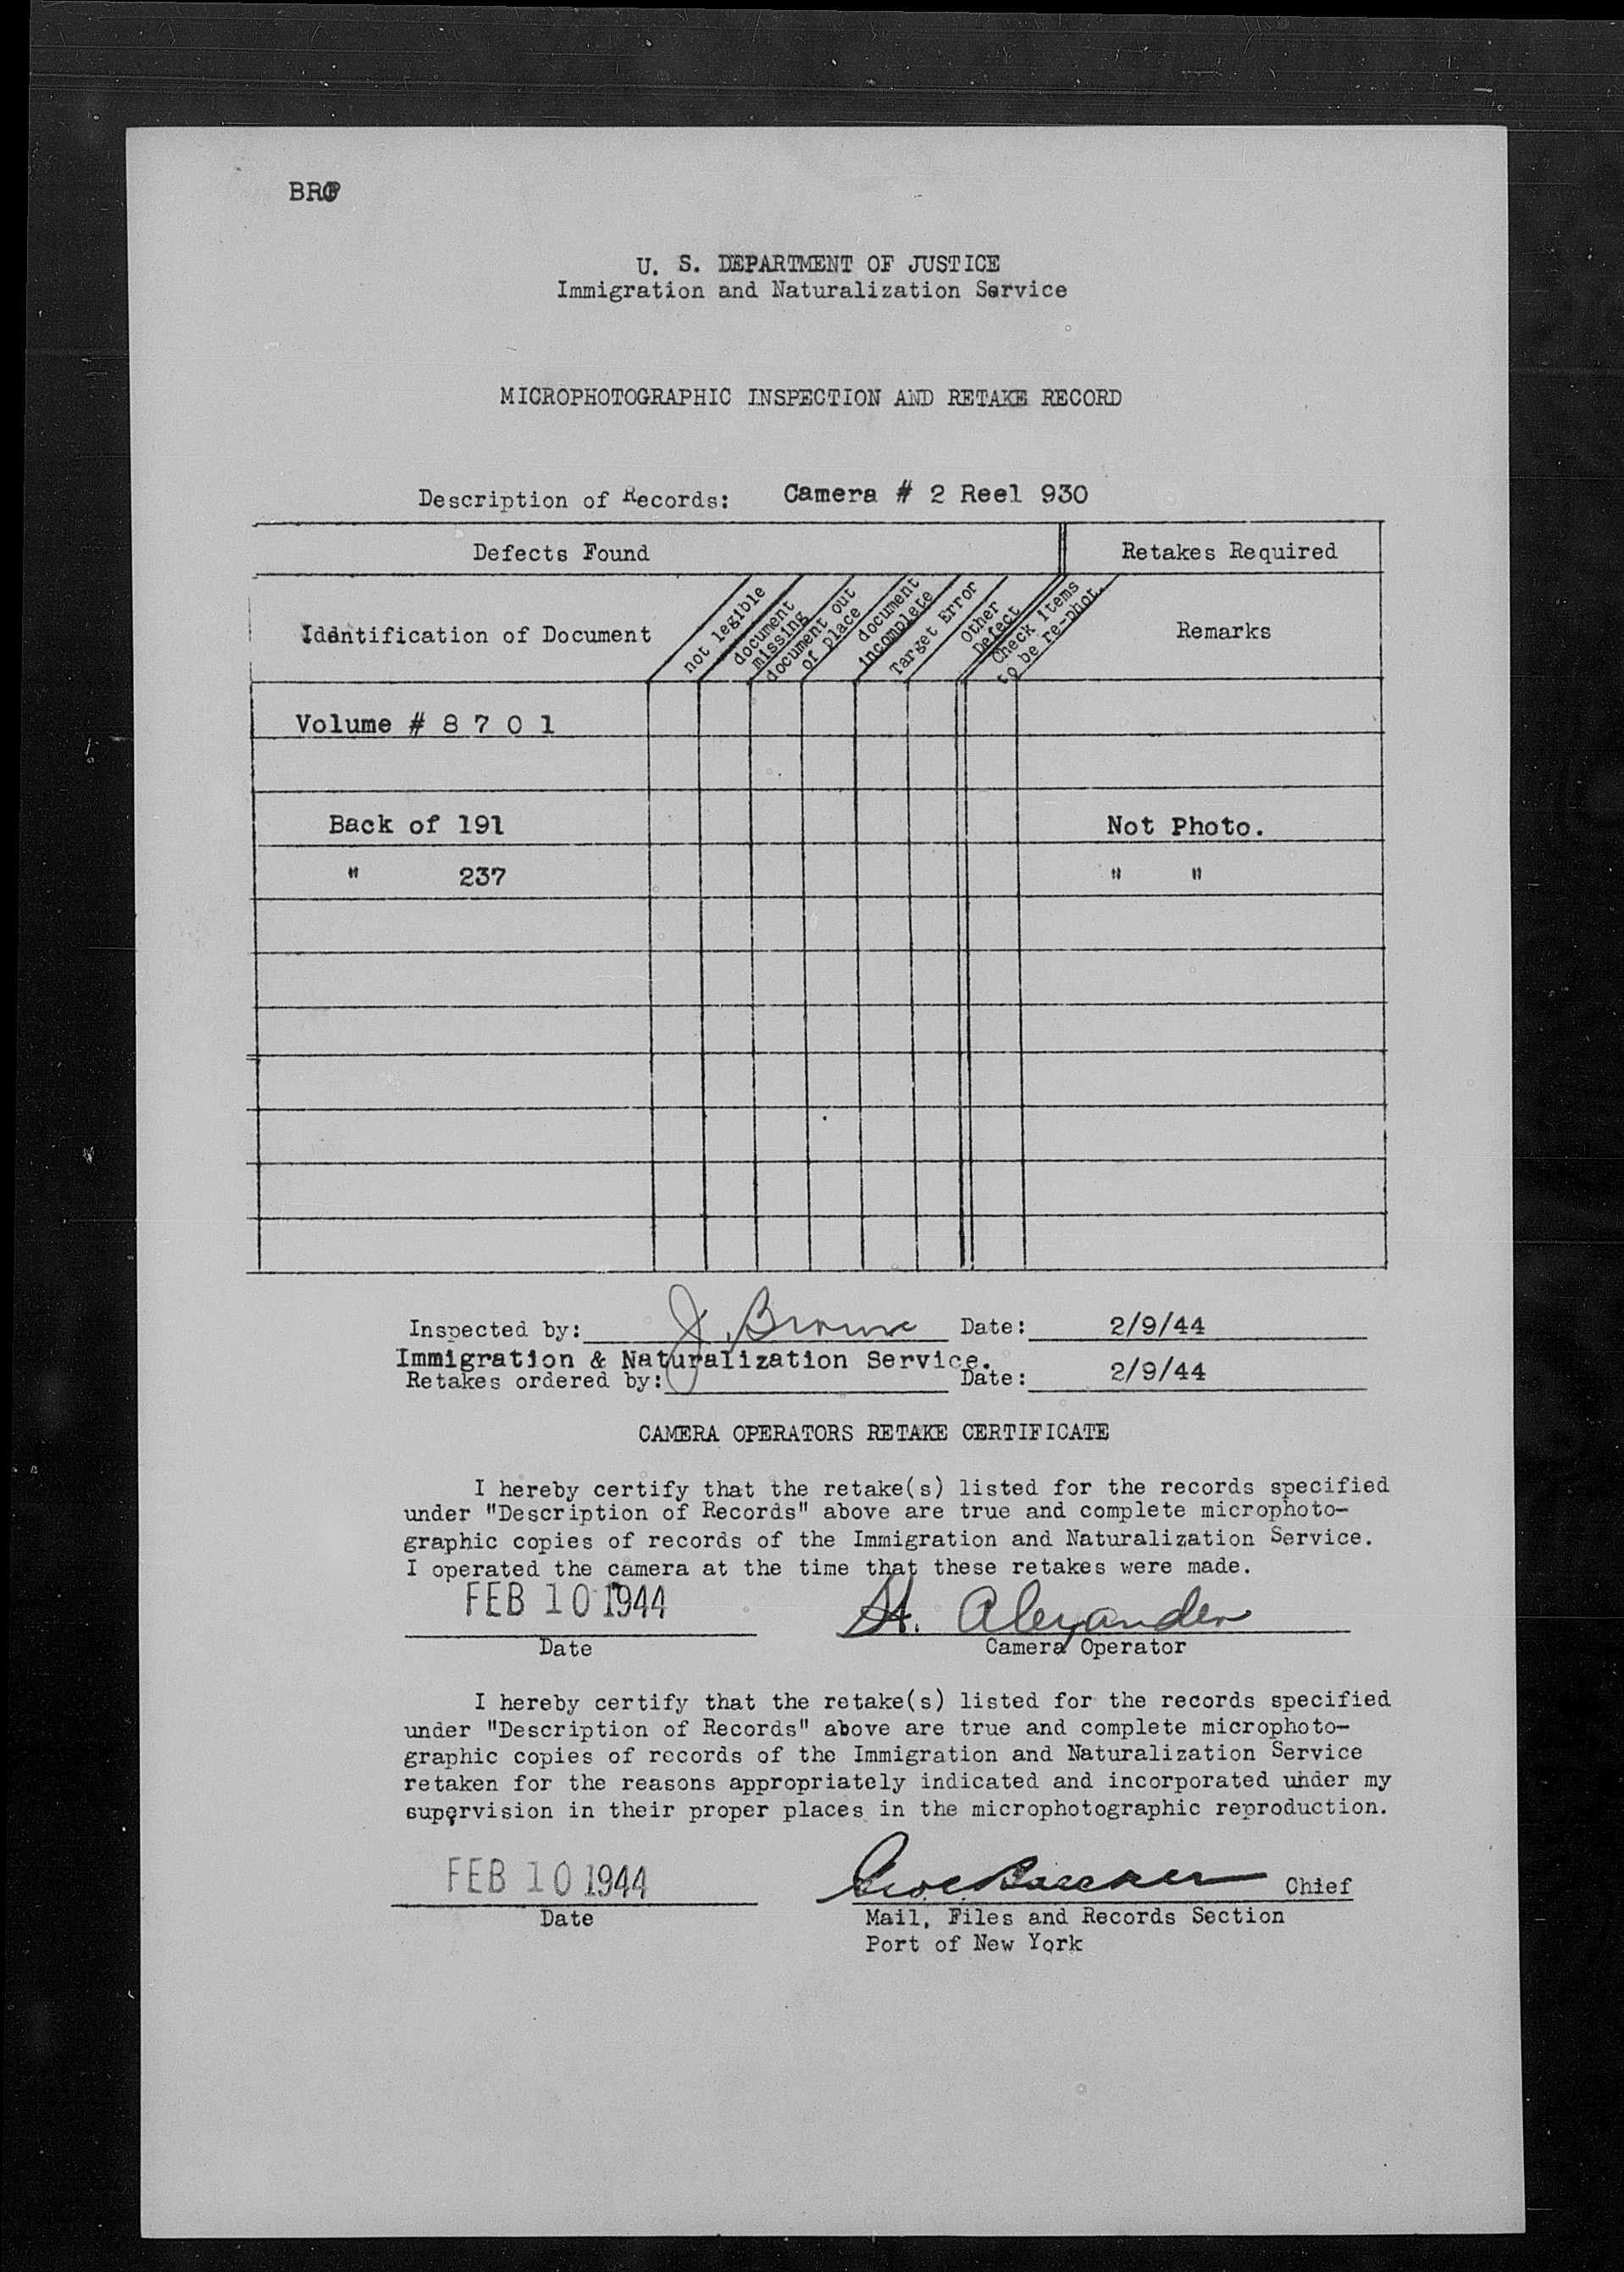 U. S. DEPARTMENT OF JUSTICE
Immigration and Naturalization Service
MICROPHOTOGRAPHIC INSPECTION AND RETAKE RECORD
Description of Records: Camera # 2 Reel 930
Defects Found
Retakes Required
Identification of Document
not legible
document missing
document out of place
document incomplete
Target Error
Other Defect
Check items to be re-phot.
Remarks
Volume # 8 7 0 1
Back of 191 Not Photo.
" 237 " "
Inspected by: J. Brown Date: 2/9/44
Immigration & Naturalization Service.
Retakes ordered by: Date: 2/9/44
CAMERA OPERATORS RETAKE CERTIFICATE
I hereby certify that the retake(s) listed for the records specified
under "Description of Records" above are true and complete microphoto-
graphic copies of records of the Immigration and Naturalization Service.
I operated the camera at the time that these retakes were made.
FEB 10 1944 H. Alexander
Date Camera Operator
I hereby certify that the retake(s) listed for the records specified
under "Description of Records" above are true and complete microphoto-
graphic copies of records of the Immigration and Naturalization Service
retaken for the reasons appropriately indicated and incorporated under my
supervision in their proper places in the microphotographic reproduction.
FEB 10 1944 Chief
Date Mail, Files and Records Section
Port of New York